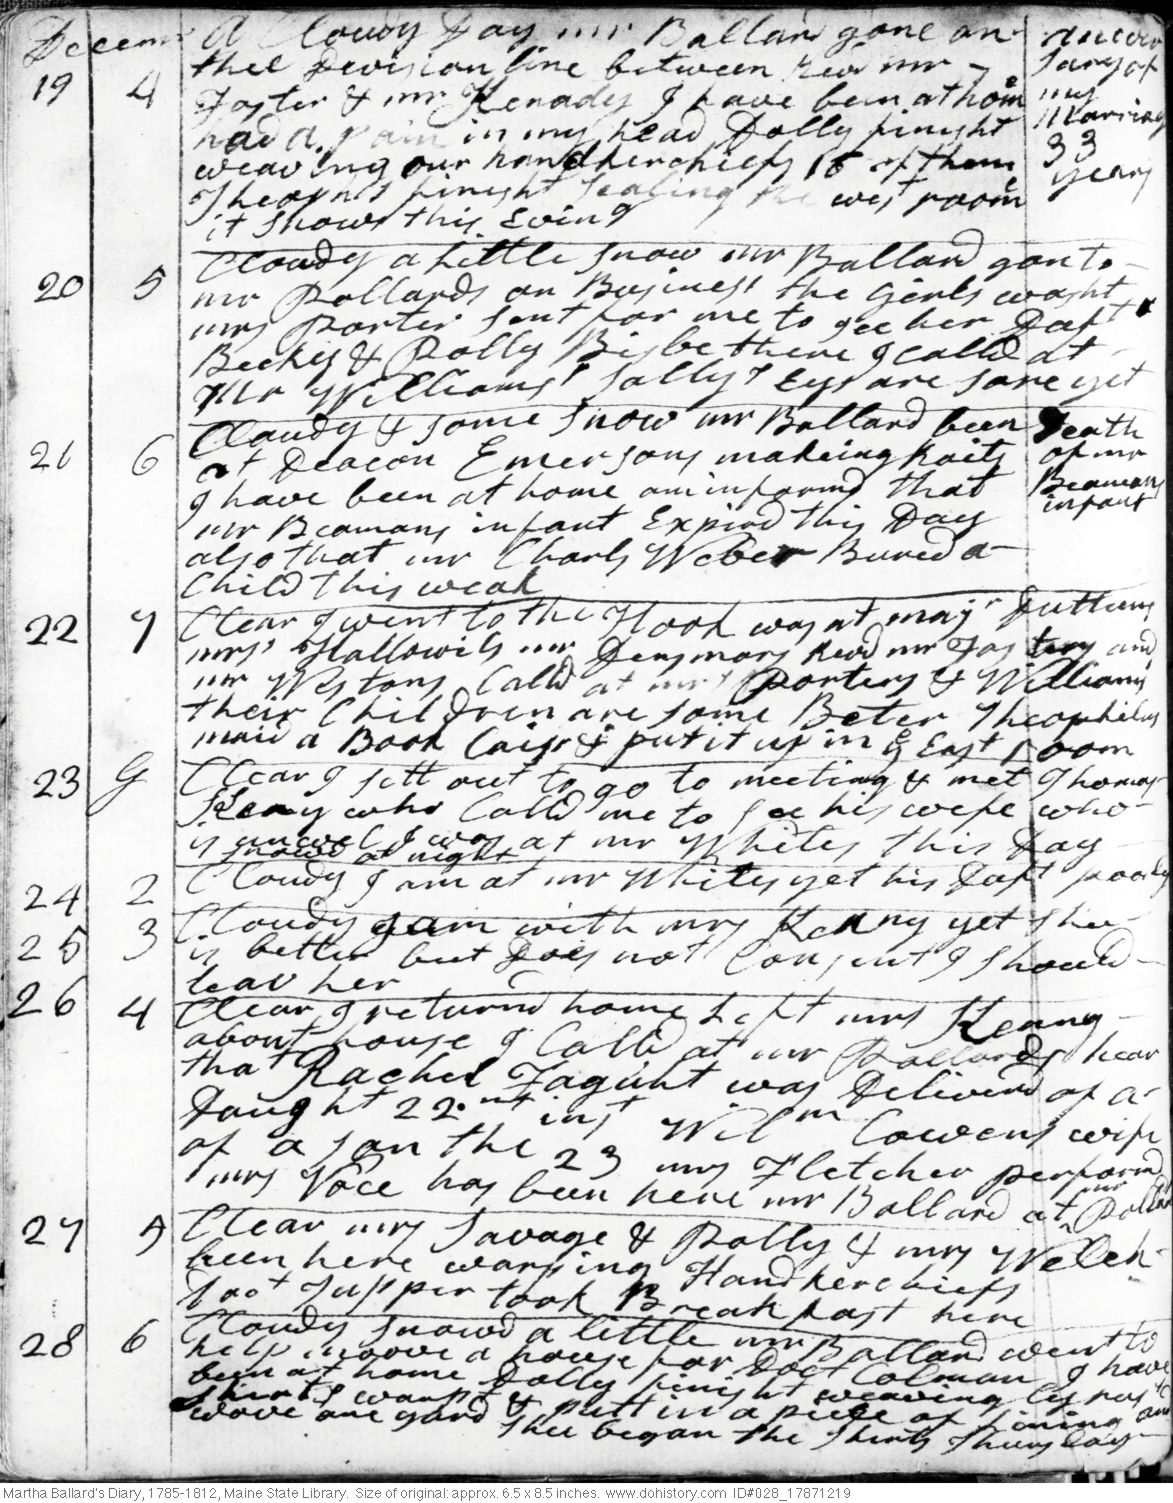 Decem
19 4 A Cloudy Day mr Ballard gone on
thee Devision line between Revd mr
Foster & mr Kenady I have been at home
had a pain in my head Dolly finisht
weaving our handkerchiefs 16 of them
Theops finisht sealing the west room
it snows this Eving
Anivers
sary of
my
Mariag
33
years
20 5 Cloudy a little snow mr Ballard gon to
mr Pollards on Business the Girls washt
mrs Porter sent for me to see her Daft
Beckey & Polly Bisbe there I calld at
Mr Williams' Sally's Eys are sore yet
21 6 Cloudy & some snow mr Ballard been
at Deacon Emersons makeing
I have been at home am informd that
mr Beamans infant Expird this Day
also that mr Charls Weber Buried a
Child this weak
Death
of mr
Beamans
infant
22 7 Clear I went to the Hook was at majr Duttuns
mrs' Hallowils mr Densmors Revd mr Fosters and
mr Westons Calld at mrs Porters & Williams
their Children are some Beter Theophilus
maid a Book Caise & put it up in ye East room
23 G Clear I sett out to go to meeting & met Thomas
Keny who Calld me to see his wife who
is unwel I was at mr Whites this Day
snowd at night
24 2 Cloudy I am at mr Whites yet his Daft poorly
25 3 Cloudy I am with mrs Kenny yet shee
is better but Does not Consent I should
leav her
26 4 Clear I returnd home Left mrs Kenny
about house I Calld at mr Pollards hear
that Rachel Fagint was Deliverd of a
Daught 22.nd inst Wilm Cowens wife
of a son the 23 mrs Fletcher performd
mrs Voce has been here mr Ballard at mr Pollard
27 5 Clear mrs Savage & Polly & mrs Welch
been here warping Handkerchiefs
Doct Supper took Breakfast here
28 6 Cloudy snowd a little mr Ballard went to
help moove a house for Doct Colman I have
been at home Dolly finisht weaving
shirts warpt & putt in a piece of lining and
wove one yard shee began the shirts Thursday
Martha Ballard's Diary, 1785-1812, Maine State Library. Size of original: approx. 6.5 x 8.5 inches. www.dohistory.com ID#028_17871219